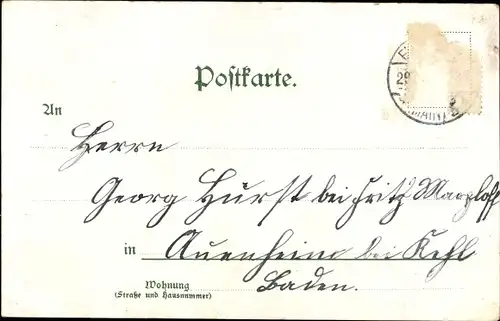 Postkarte.
An
Herrn
Georg Hurst bei Fritz
in Auenheim bei Kehl
Baden.
Wohnung
(Straße und Hausnummer)